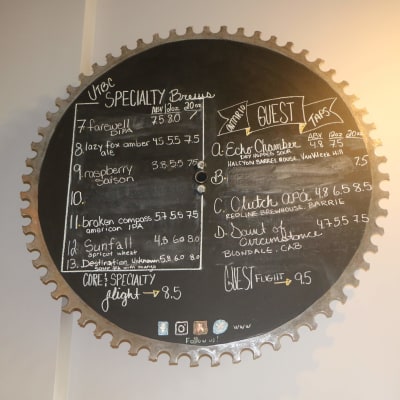 VTBC
SPECIALTY Brews
ABV 12oz 20oz
7. farewell 7.5 8.0 /
DIPA
8. lazy fox amber 4.5 5.5 7.5
ale
9. raspberry 3.8 5.5 7.5
saison
10.
11. broken compass 5.7 5.5 7.5
american IPA
12. Sunfall 4.8 6.0 8.0
apricot wheat
13. Destination Unknown 5.8 6.0 8.0
CORE & SPECIALTY
flight → 8.5
ONTARIO GUEST TAPS
ABV 12oz 20oz
A. Echo Chamber 4.8 7.5
DRY HOPPED SOUR
HALCYON BARREL HOUSE, VANKLEEK HILL
B. 7.5
C. Clutch APA 4.8 6.5 8.5
REDLINE BREWHOUSE, BARRIE
D. Saint of 4.7 5.5 7.5
Circumstance
BLONDALE - CAB
GUEST FLIGHT → 9.5
www
Follow us!